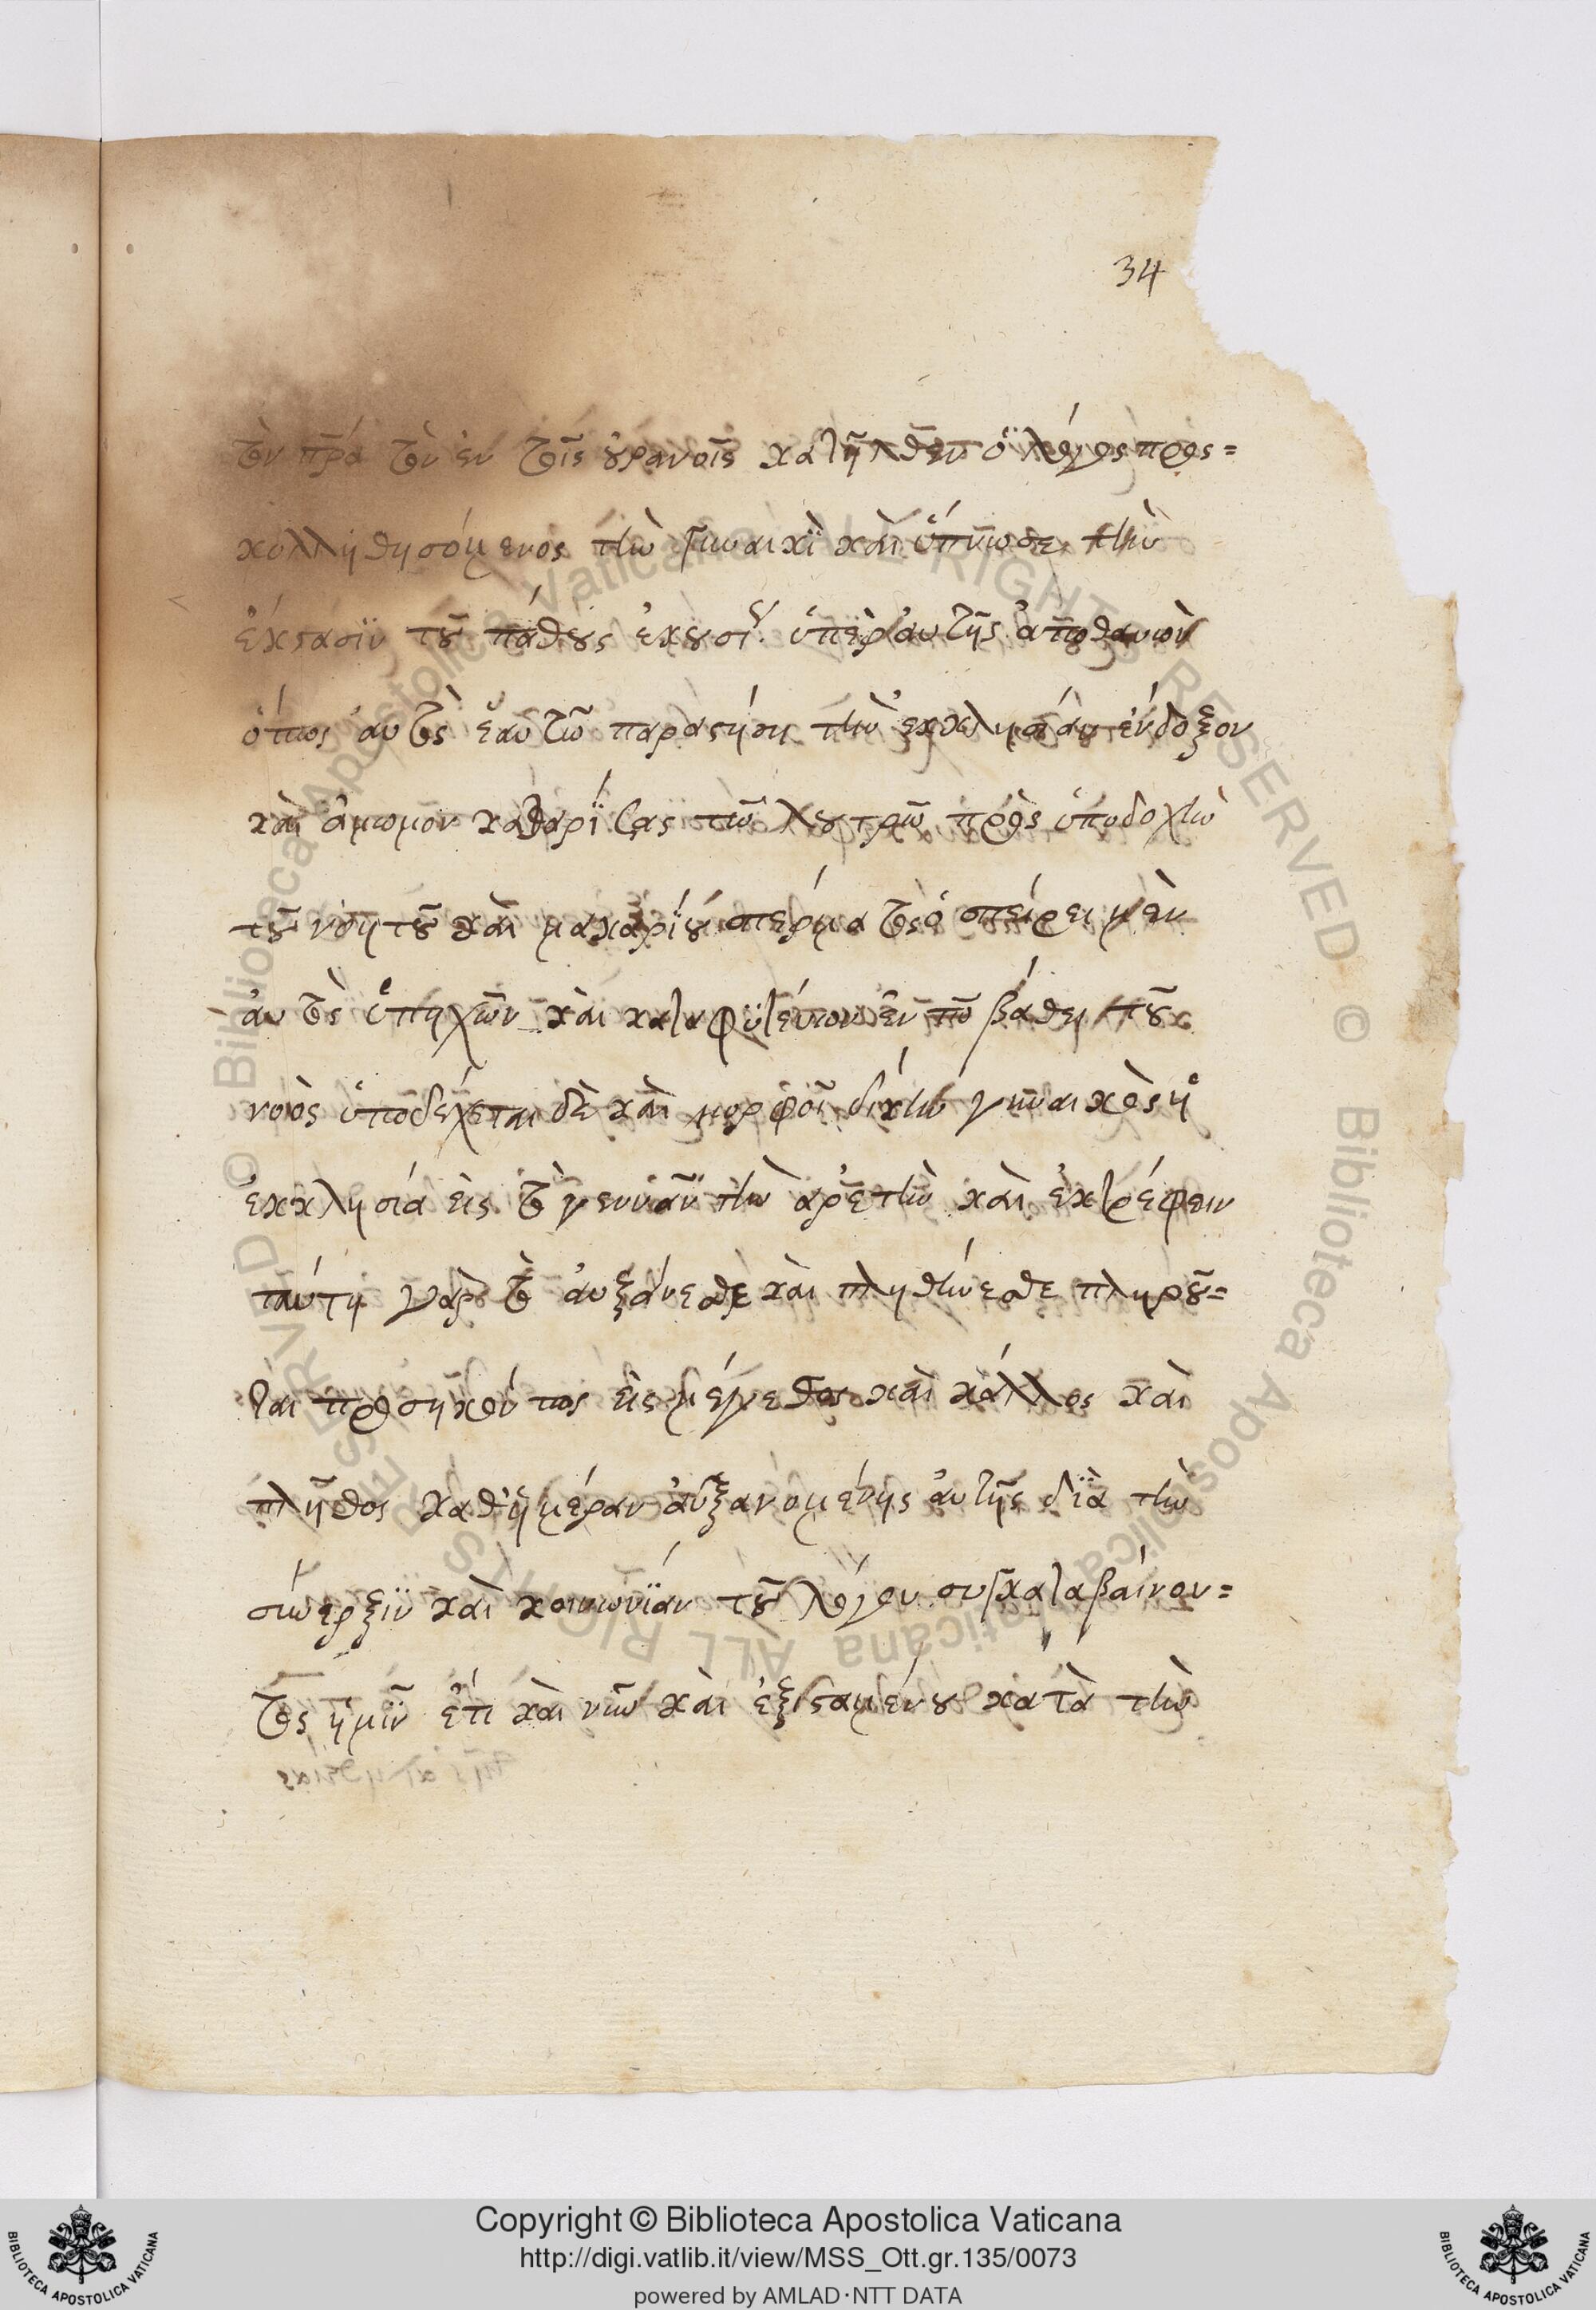 34
τὸν πρ̅α τὸν ἐν τοῖς οὐρανοῖς κατῆλθεν ὁ λόγος προσ=
κολληθησόμενος τὴν γυναικὶ καὶ ὕπνωσε τὴν
ἔκστασιν τοῦ πάθους ἑκουσί ὑπὲρ αὐτῆς ἀποθανὼν
ὅπως αὐτὸς ἑαυτῶ παραστήση τὴν ἐκκλησίαν ἔνδοξον
καὶ ἄμωμον καθαρίσας τῶ λουτρῶ πρὸς ὑποδοχὴν
τοῦ νοητοῦ καὶ μακαρίου σπέρματος ὁ σπείρει μὲν
αὐτὸς ὑπηχῶν καὶ καταφυτεύων ἐν τῶ βάθει τοῦ
νοὸς ὑποδέχεται δὲ καὶ μορφοῖ δίκην γυναικὸς ἡ
ἐκκλησία εἰς τὸ γεννᾶν τὴν ἀρετὴν καὶ ἐκτρέφειν
ταύτη γὰρ τὸ αὐξάνεσθε καὶ πληθύνεσθε πληροῦ=
ται προσηκόντως εἰς μέγεθος καὶ κάλλος καὶ
πλῆθος καθ' ἡμέραν αὐξανομένης αὐτῆς διὰ τὴν
σύνερξιν καὶ κοινωνίαν τοῦ λόγου συγκαταβαίνον=
τος ἡμῖν ἔτι καὶ νῦν καὶ ἐξισταμένου κατὰ τὴν
© Biblioteca Apostolica Vaticana ALL RIGHTS RESERVED © Biblioteca Apostolica Vaticana ALL RIGHTS RESERVED
Copyright © Biblioteca Apostolica Vaticana
http://digi.vatlib.it/view/MSS_Ott.gr.135/0073
powered by AMLAD·NTT DATA
BIBLIOTECA APOSTOLICA VATICANA
BIBLIOTECA APOSTOLICA VATICANA